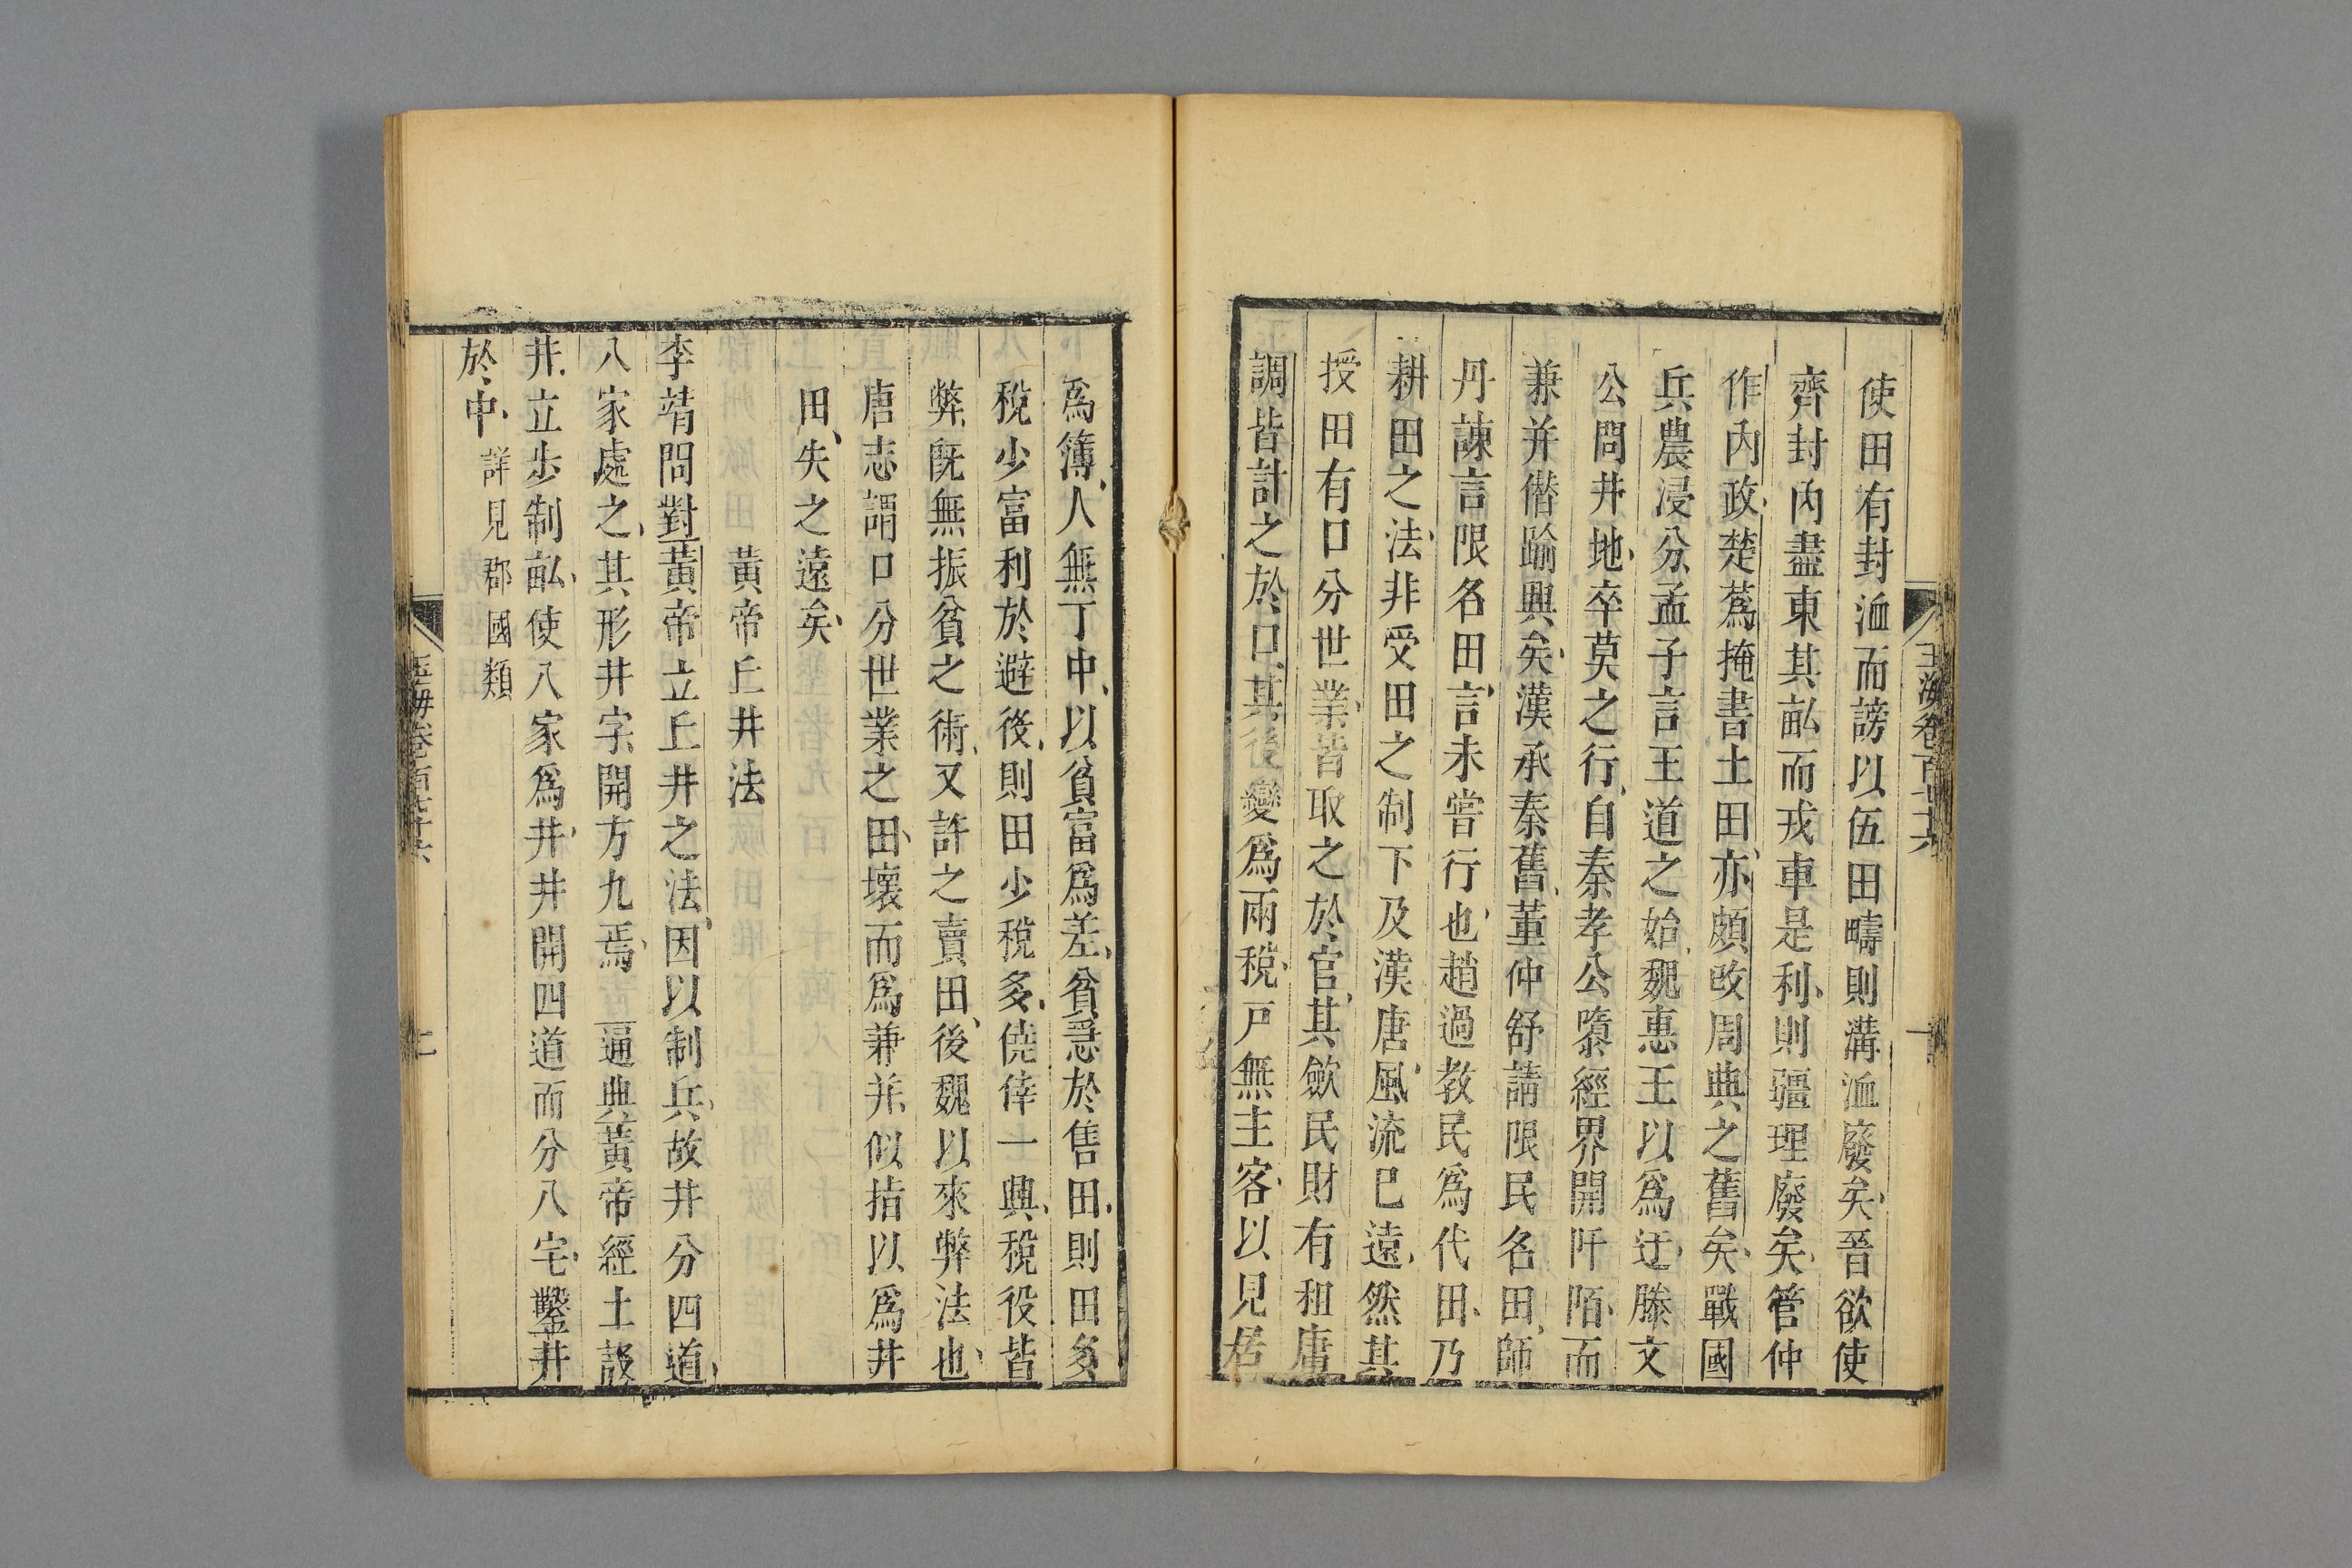 使田有封洫而謗以伍田疇則溝洫廢矣晉欲使
齊封內盡東其畝而戎車是利則疆理廢矣管仲
作內政楚蔿掩書土田亦頗改周典之舊矣戰國
兵農浸分孟子言王道之始魏惠王以爲迂滕文
公問井地卒莫之行自秦孝公隳經界開阡陌而
兼并僭踰興矣漢承秦舊董仲舒請限民名田師
丹諫言限名田言未嘗行也趙過教民爲代田乃
耕田之法非受田之制下及漢唐風流已遠然其
授田有口分世業皆取之於官其斂民財有租庸
調皆計之於口其後變爲兩稅戶無主客以見居
爲簿人無丁中以貧富爲差貧急於售田則田多
稅少富利於避役則田少稅多僥倖一興稅役皆
弊旣無振貧之術又許之賣田後魏以來弊法也
唐志謂口分世業之田壞而爲兼并似指以爲井
田失之遠矣
黃帝丘井法
李靖問對黃帝立丘井之法因以制兵故井分四道
八家處之其形井字開方九焉 通典黃帝經土設
井立步制畝使八家爲井井開四道而分八宅鑿井
於中 詳見郡國類
玉海卷百七十六